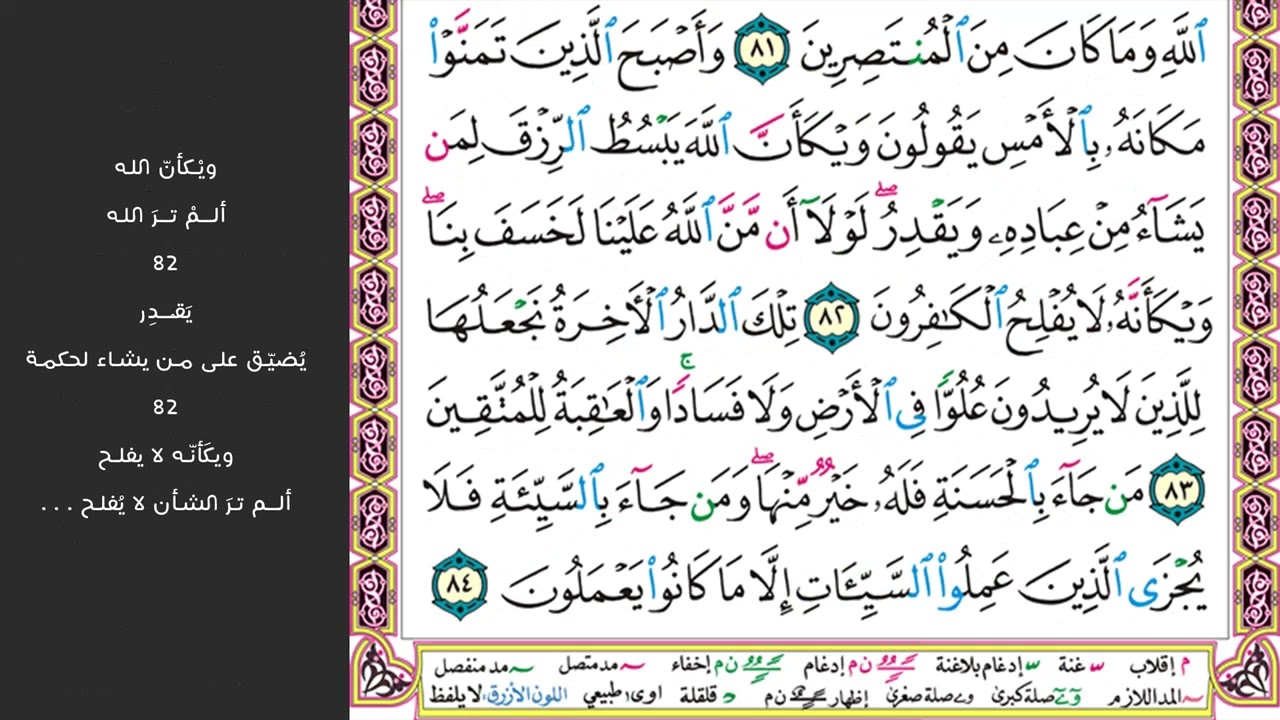 ويْكأنّ الله
ألـمْ تـرَ الله
82
يَقـدِر
يُضيّـق على مـن يشـاء لحكمـة
82
ويكَأنّـه لا يفلـح
ألـم تـرَ الشـأن لا يُفلـح ...
ٱللَّهِ وَمَا كَانَ مِنَ ٱلْمُنتَصِرِينَ ٨١ وَأَصْبَحَ ٱلَّذِينَ تَمَنَّوْا۟
مَكَانَهُۥ بِٱلْأَمْسِ يَقُولُونَ وَيْكَأَنَّ ٱللَّهَ يَبْسُطُ ٱلرِّزْقَ لِمَن
يَشَآءُ مِنْ عِبَادِهِۦ وَيَقْدِرُ ۖ لَوْلَآ أَن مَّنَّ ٱللَّهُ عَلَيْنَا لَخَسَفَ بِنَا ۖ
وَيْكَأَنَّهُۥ لَا يُفْلِحُ ٱلْكَـٰفِرُونَ ٨٢ تِلْكَ ٱلدَّارُ ٱلْأَخِرَةُ نَجْعَلُهَا
لِلَّذِينَ لَا يُرِيدُونَ عُلُوًّا فِى ٱلْأَرْضِ وَلَا فَسَادًا ۚ وَٱلْعَـٰقِبَةُ لِلْمُتَّقِينَ
٨٣ مَن جَآءَ بِٱلْحَسَنَةِ فَلَهُۥ خَيْرٌ مِّنْهَا ۖ وَمَن جَآءَ بِٱلسَّيِّئَةِ فَلَا
يُجْزَى ٱلَّذِينَ عَمِلُوا۟ ٱلسَّيِّـَٔاتِ إِلَّا مَا كَانُوا۟ يَعْمَلُونَ ٨٤
م إقلاب ـّ غنة ـّ إدغام بلاغنة ن م إدغام ن م إخفاء ~ مد متصل ~ مد منفصل
~ المد اللازم و ے صلة كبرى و ے صلة صغرى إظهار ن م د قلقلة اوى طبيعي اللون الأزرق: لا يلفظ